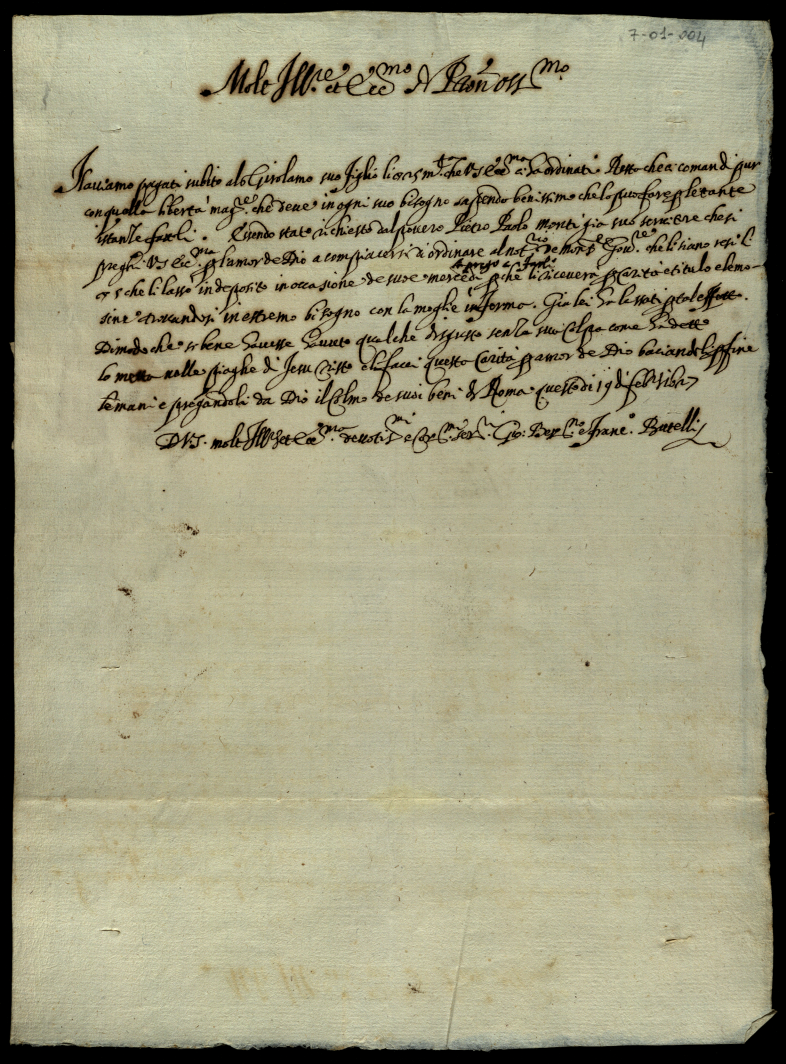 7-01-004
Molt Ill.re et Ecc.mo S.r Pron oss.mo
Haviamo pagati subito al S. Girolamo suo figlio li 25 m.ta che V.S. Ecc.ma ci ha ordinati. Resto che ci comandi pur
con quella libertà mag.re che deve in ogni suo bisogno sapendo benissimo che lo può fare per le tante
istanze fateli. Essendo stato richiesto dal povero Pietro Paolo Monti già suo servitore che si
preghi V.S. Ecc.ma per l'amor de Dio a compiacersi di ordinare al not.rio de mons.r Gov.re che li siano resi li
che li lassò in deposito in occasione de sue mercedi perche li riceverà per carità e titulo elemo-
sine trovandosi in estremo bisogno con la moglie inferma. Già lei ha lassati per tal effetto.
Dimodo che se bene havesse havuto qualche disgusto senza sua colpa come ha detto
lo metta nelle piaghe di Jesu Christo e li facci questa carità per amor de Dio baciandoli per fine
le mani e pregandoli da Dio il colmo de suoi beni di Roma questo di 19 di
D.V.S. molt Ill.re et Ecc.ma devotis.mi e ser.ri Gio: e Franc.o Battelli